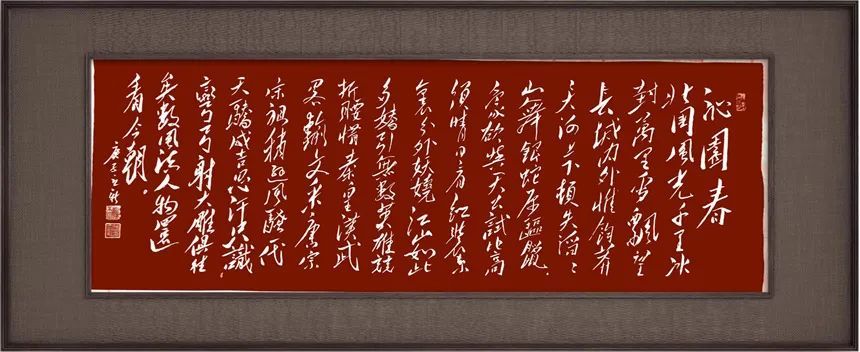 沁園春
北國風光千里冰
封萬里雪飄望
長城内外惟餘莽
大河上下頓失滔〻
山舞銀蛇原驅臘
象欲與天公試比高
須晴日看紅裝素
裹分外妖嬈江山如此
多嬌引無數英雄競
折腰惜秦皇漢武
略輸文采唐宗
宋祖稍遜風騷一代
天驕成吉思汗只識
彎弓射大雕俱往
矣數風流人物還
看今朝